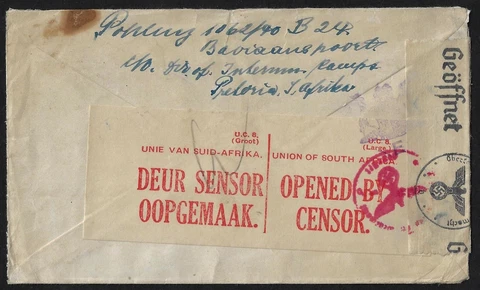 Pohling 1062/40 B 24
Baviaanspoort
c/o. Dir. of Internm. Camps
Pretoria S. Afrika
Geöffnet
U.C. 6.
(Groot)
UNIE VAN SUID-AFRIKA.
DEUR SENSOR
OOPGEMAAK.
U.C. 6.
(Large)
UNION OF SOUTH AFRICA.
OPENED BY
CENSOR.
G